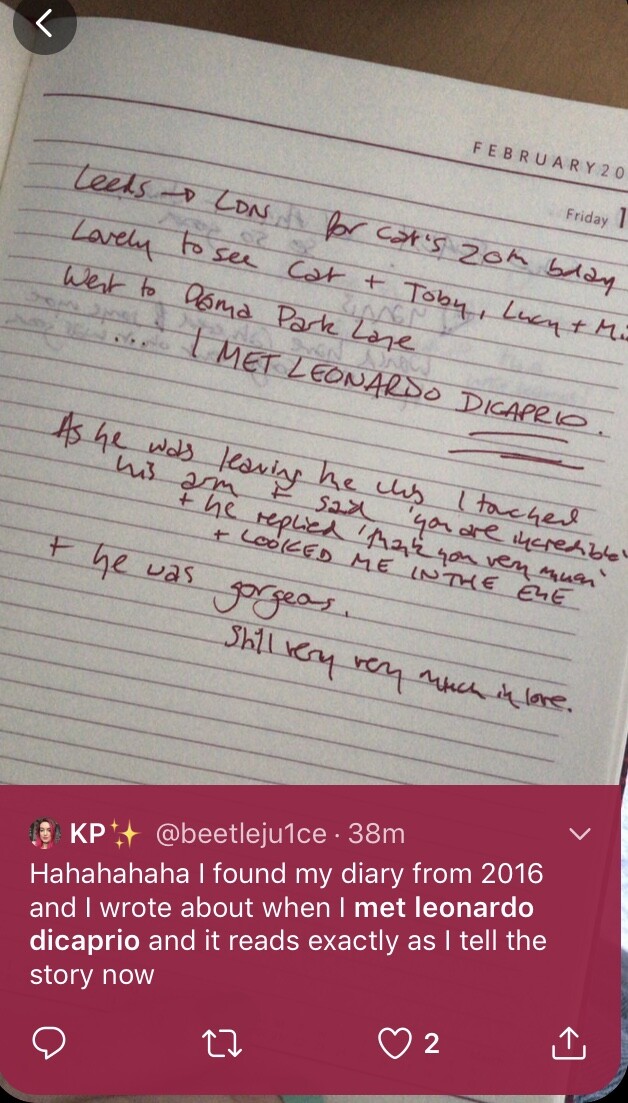 FEBRUARY 20
Friday 1
Leeds → LDN for Cat's 20th bday
Lovely to see Cat + Toby, Lucy + Mi
Went to Park Lane
.... I MET LEONARDO DICAPRIO.
As he was leaving the I touched
his arm + said 'you are incredible'
+ he replied 'thank you very much'
+ LOOKED ME IN THE EYE
+ he was gorgeous.
Still very very much in love.
KP✨ @beetleju1ce · 38m
Hahahahaha I found my diary from 2016
and I wrote about when I met leonardo
dicaprio and it reads exactly as I tell the
story now
2